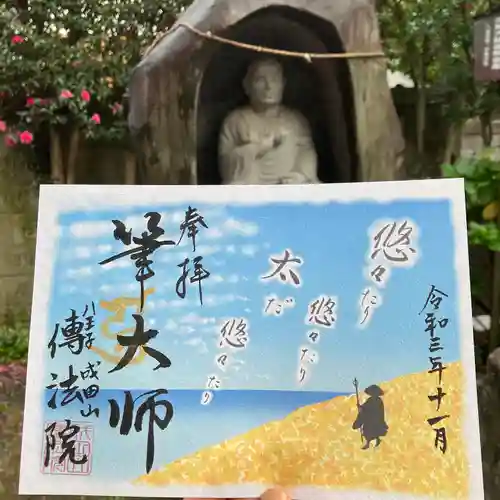 令和三年十一月
悠々たり
太だ
悠々たり
悠々たり
奉拝
筆大師
八王子 成田山
傳法院